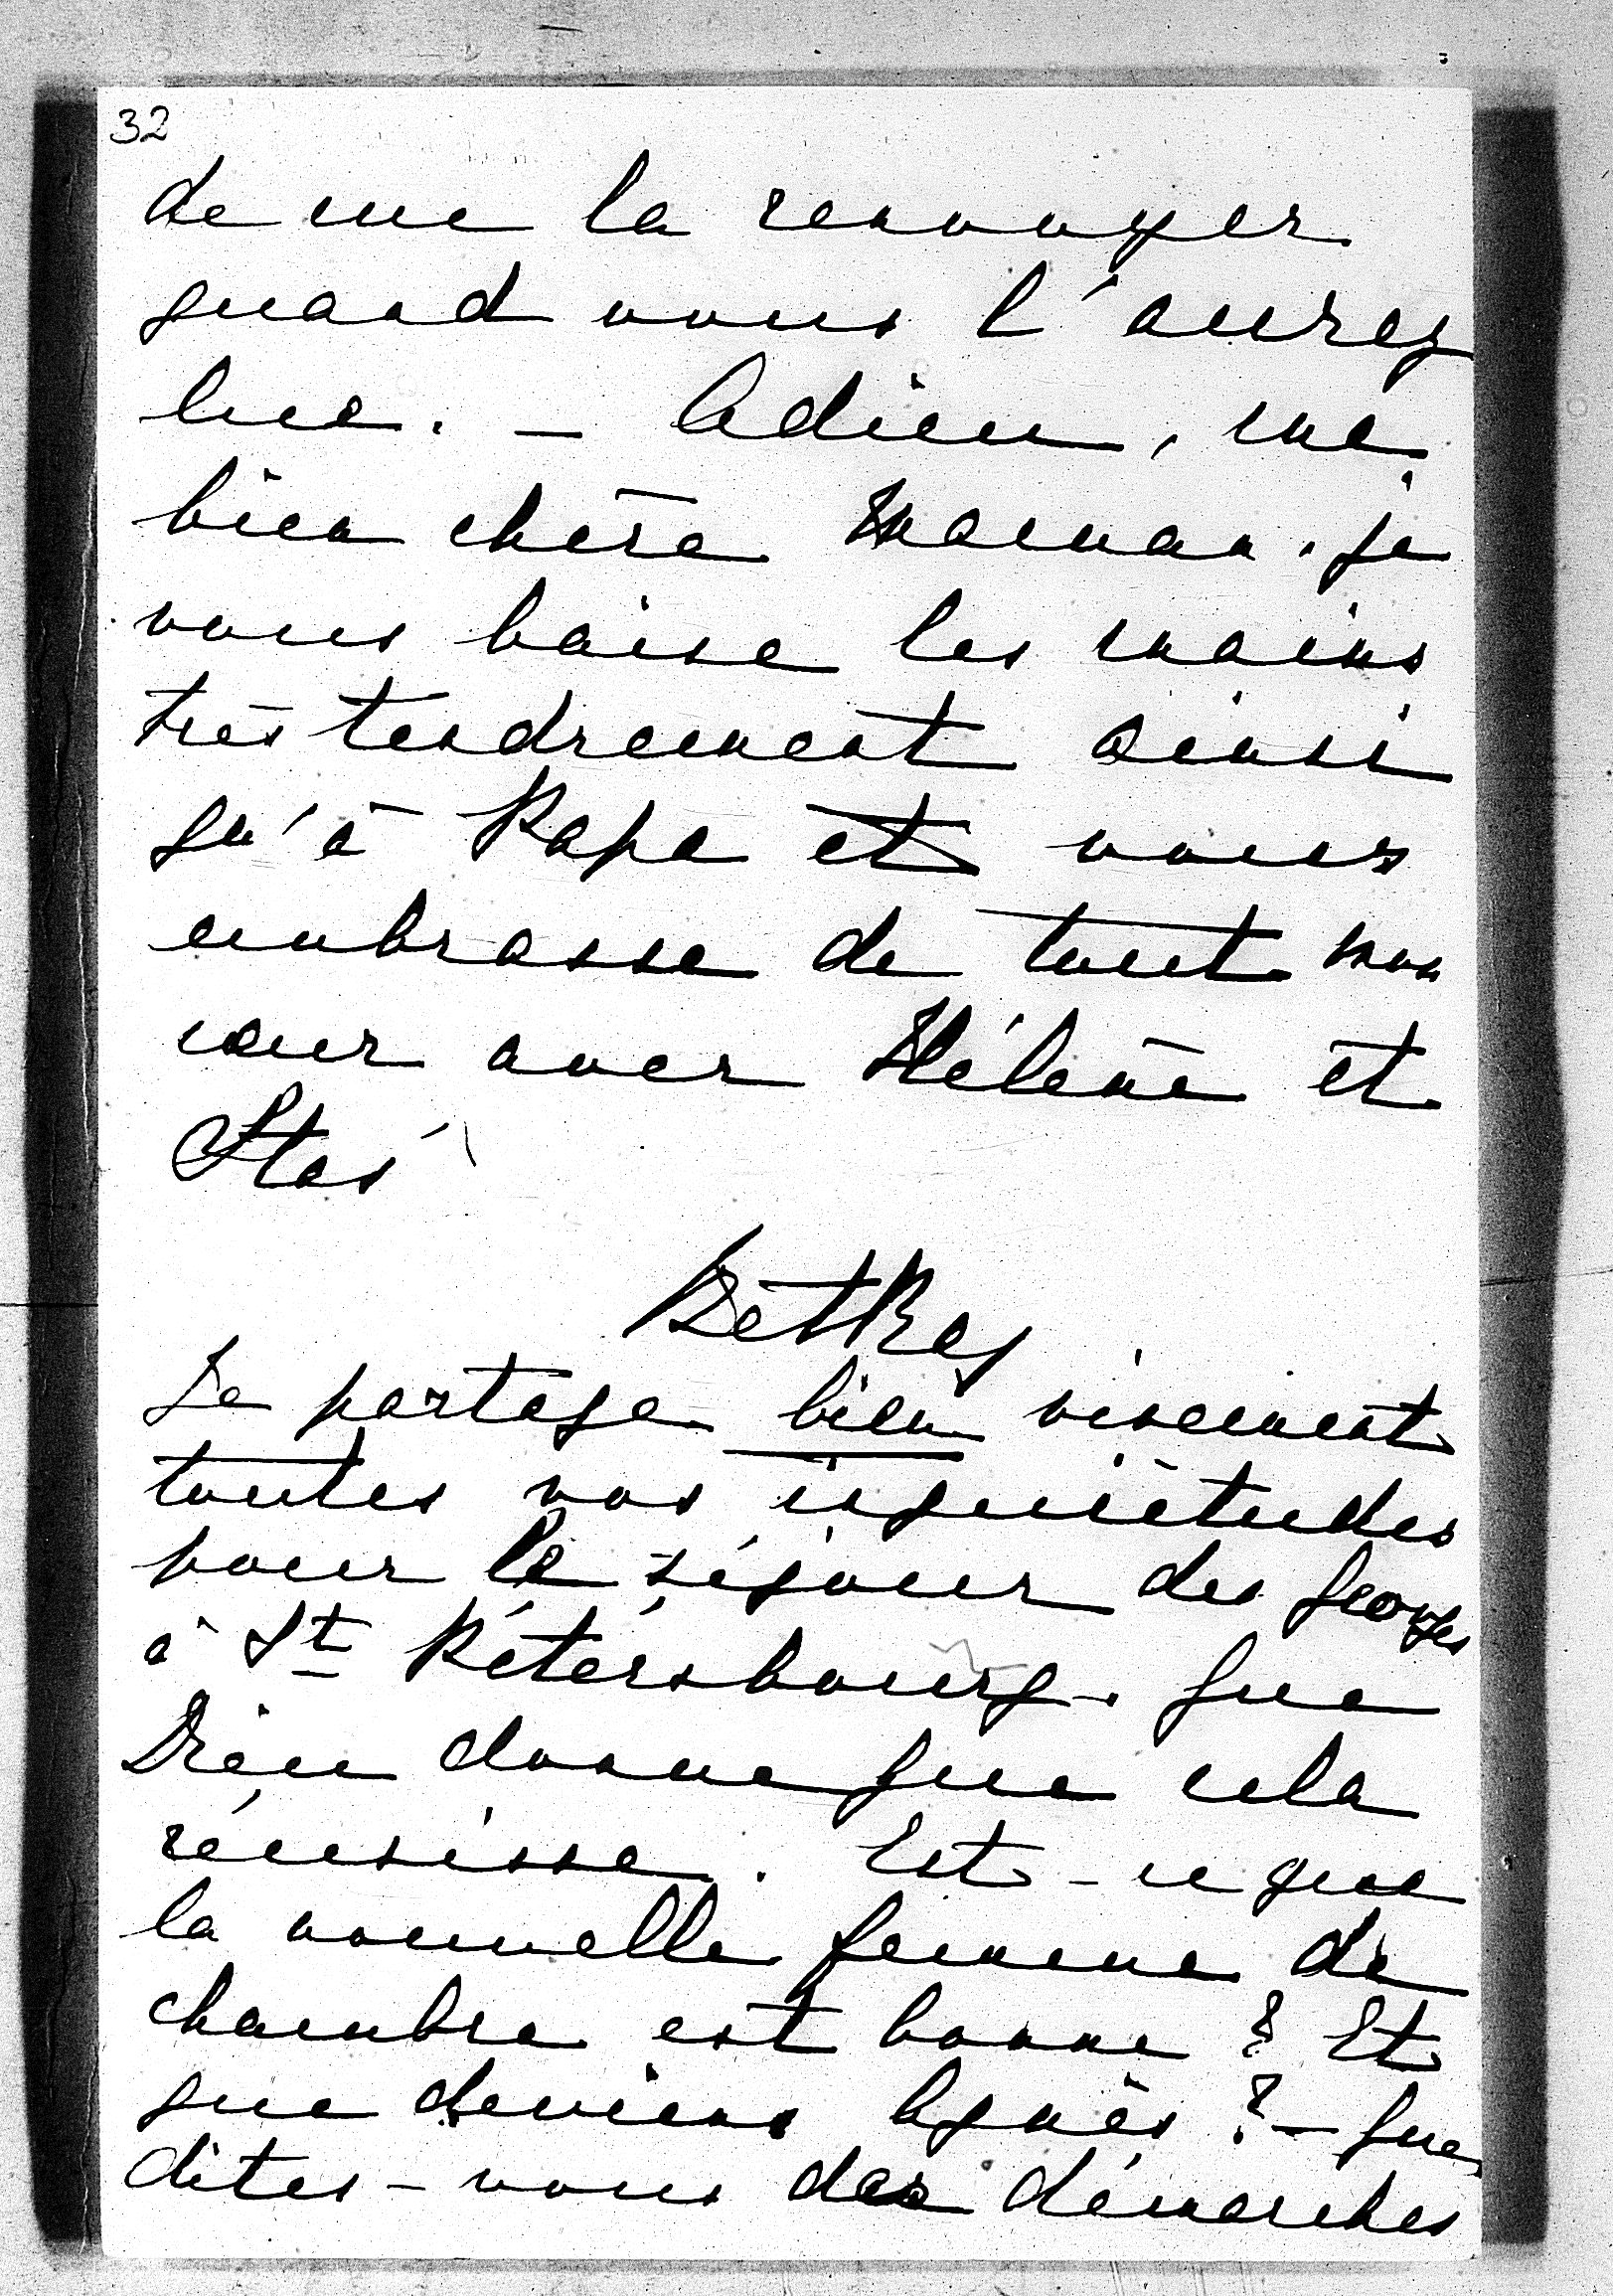 32
de me la renvoyer
quand vous l'aurez
lue. – Adieu, ma
bien chère Maman. je
vous baise les mains
très tendrement ainsi
qu'à Papa et vous
embrasse de tout mon
cœur avec Hélène et
Stas'
Je partage bien vivement
toutes vos inquiétudes
pour le séjour des Georges
à St Pétersbourg. Que
Dieu donne que cela
réussisse. Est-ce que
la nouvelle femme de
chambre est bonne? Et
que deviens Agnès? – Que
dites-vous des démarches